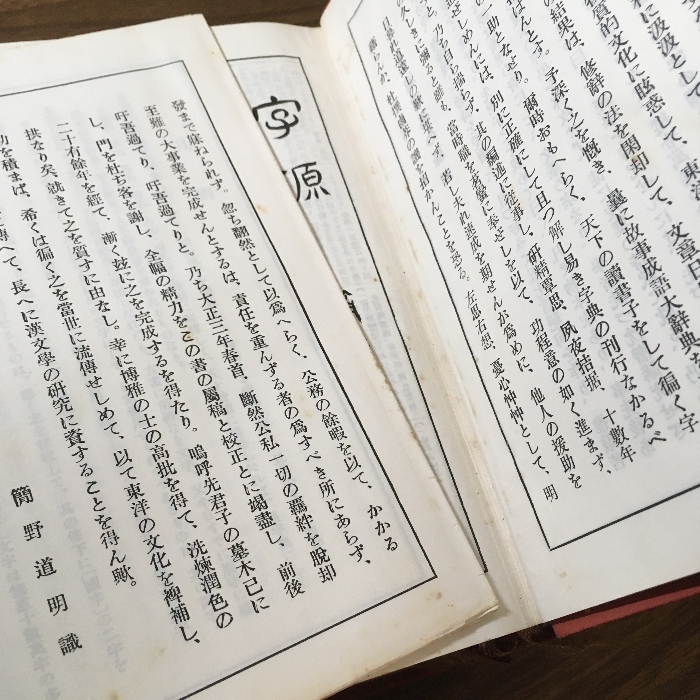 に汲汲として、東
質的文化に眩惑して、文
結果は、修辭の法を閑却して、
ばんとす。予深く之を慨き、曩に故事成語大辭典
一助となせり。爾時おもへらく、天下の讀書子をして徧く字
ざしめんには、別に正確にして且つ解し易き字典の刊行なかるべ
と。乃ち自ら揣らず、其の編述に從事し、研精覃思、夙夜拮据、十數年
久しきに彌
も、當時職を
に奉ぜしを以て、功程意の如く進まず、
若し夫れ速成を期せんが爲めに、他人の援助を
を招かんことを恐る。左思右想、憂心忡忡として、明
字源
發まで寐ねられず。忽ち翻然として以爲へらく、公務の餘暇を以て、かかる
至難の大事業を完成せんとするは、責任を重んずる者の爲すべき所にあらず、
吁吾過てり、吁吾過てりと。乃ち大正三年春首、斷然公私一切の羈絆を脱却
し、門を杜ぢ客を謝し、全幅の精力をこの書の屬稿と校正とに竭盡し、前後
二十有餘年を經て、漸く玆に之を完成するを得たり。嗚呼先君子の墓木已に
拱なり矣、就きて之を質すに由なし。幸に博雅の士の高批を得て、洗煉潤色の
功を積まば、希くは徧く之を當世に流傳せしめて、以て東洋の文化を裨補し、
傳へて、長へに漢文學の研究に資することを得ん歟。
簡野道明識